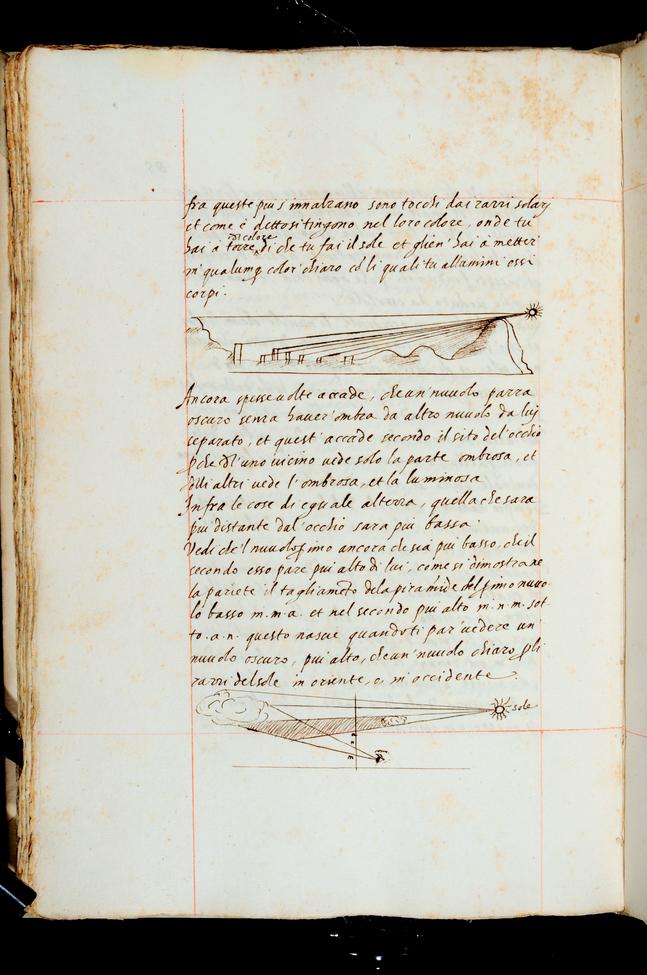 fra queste piu s'innalzano sono tocchi dai razzi solarj
et come è detto si tingono nel loro colore, onde tu
di colore
hai à torre, di che tu fai il sole et glien'hai à metter'
in qualunq color' chiaro cō li quali tu allumini essi
corpi.
Ancora spesse volte accade, che un' nuvolo parra
oscuro senza haver' ombra da altro nuvolo da lui
separato, et quest' accade secondo il sito del'occhio
pche dl'uno vicino vede solo la parte ombrosa, et
dlli altri vede l'ombrosa, et la luminosa
Infra le cose di eguale altezza, quella che sara
piu' distante dal'occhio sara piu bassa.
Vedi che'l nuvolo pimo ancora che sia piu basso, che il
secondo esso pare piu alto di lui, come si dimostra ne
la pariete il tagliamēto dela piramide del pimo nuvo-
lo basso m.m.a. et nel secondo piu alto m.n.m. sot-
to.a.n. questo nasce quando ti par' vedere un'
nuvolo oscuro, piu alto, che un' nuvolo chiaro p li
razzi del sole in oriente, o in occidente
sole